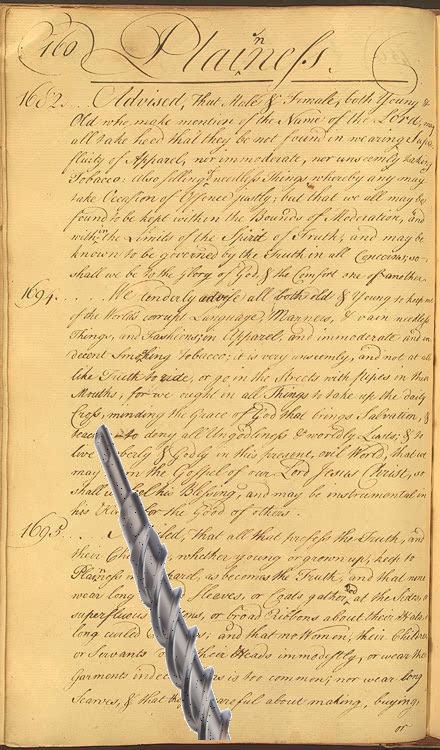 160 Plainness.
1682... Advised, that Male & Female, both Young &
Old who make mention of the Name of the Lord, may
all take heed that they be not found in wearing Supr
fluity of Apparel, nor immoderate, nor unseemly taking
Tobacco: also selling needless Things whereby any may
take Occasion of Offence justly; but that we all may be
found to be kept within the Bounds of Moderation, and
within the Limits of the Spirit of Truth; and may be
known to be governed by the Truth in all Concerns, so
shall we be to the Glory of God, & the Comfort one of another.
1694.... We tenderly advise all both old & Young to keep out
of the World's corrupt Language, Manners, & vain needless
Things, and Fashions, in Apparel; and immoderate and in
decent Smoking Tobacco; it is very unseemly, and not at all
like Truth to ride, or go in the Streets with pipes in their
Mouths, for we ought in all Things to take up the daily
Cross, minding the Grace of God that brings Salvation, &
to deny all Ungodliness & worldly Lusts, & to
live & Godly in this present, evil World, that we
may the Gospel of our Lord Jesus Christ, so
shall his Blessing, and may be instrumental in
his for the Good of others.
1695. that all that profess the Truth, and
their whether young or grown up, keep to
Plainness in as becomes the Truth, and that none
wear long Sleeves, or Coats gather'd at the Sides, or
superfluous or broad Ribbons about their Hats, or
long curled and that no Women, their Children
or Servants their Heads immodestly, or wear their
Garments is too common; nor wear long
Scarves, & that careful about making, buying,
or